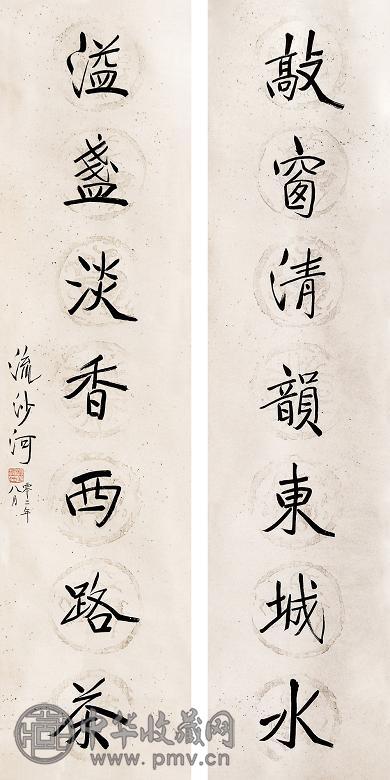 敲窗清韻東城水
溢盞淡香西路茶
流沙河
八月
中华收藏网
www.pmv.cn